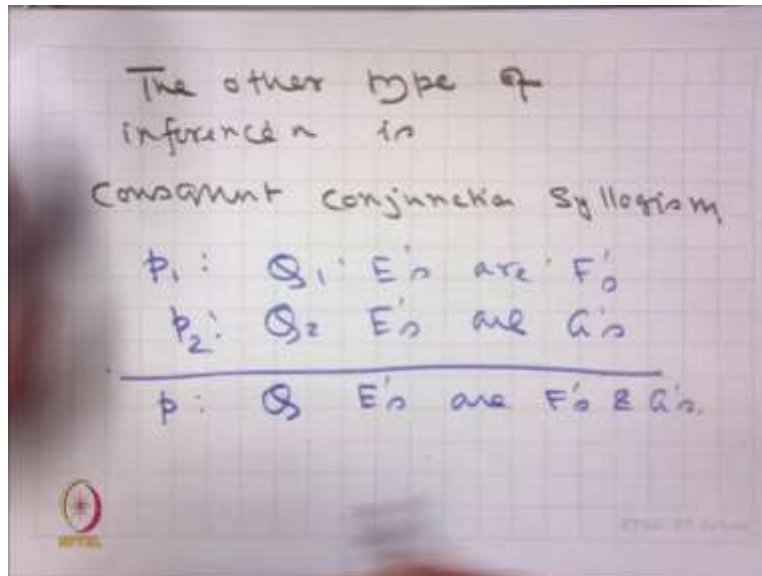 The other type of
inference is
Consequent Conjunction Syllogism
p₁ : Q₁ E's are F's
p₂ : Q₂ E's are G's
p : Q E's are F's & G's.
NPTEL